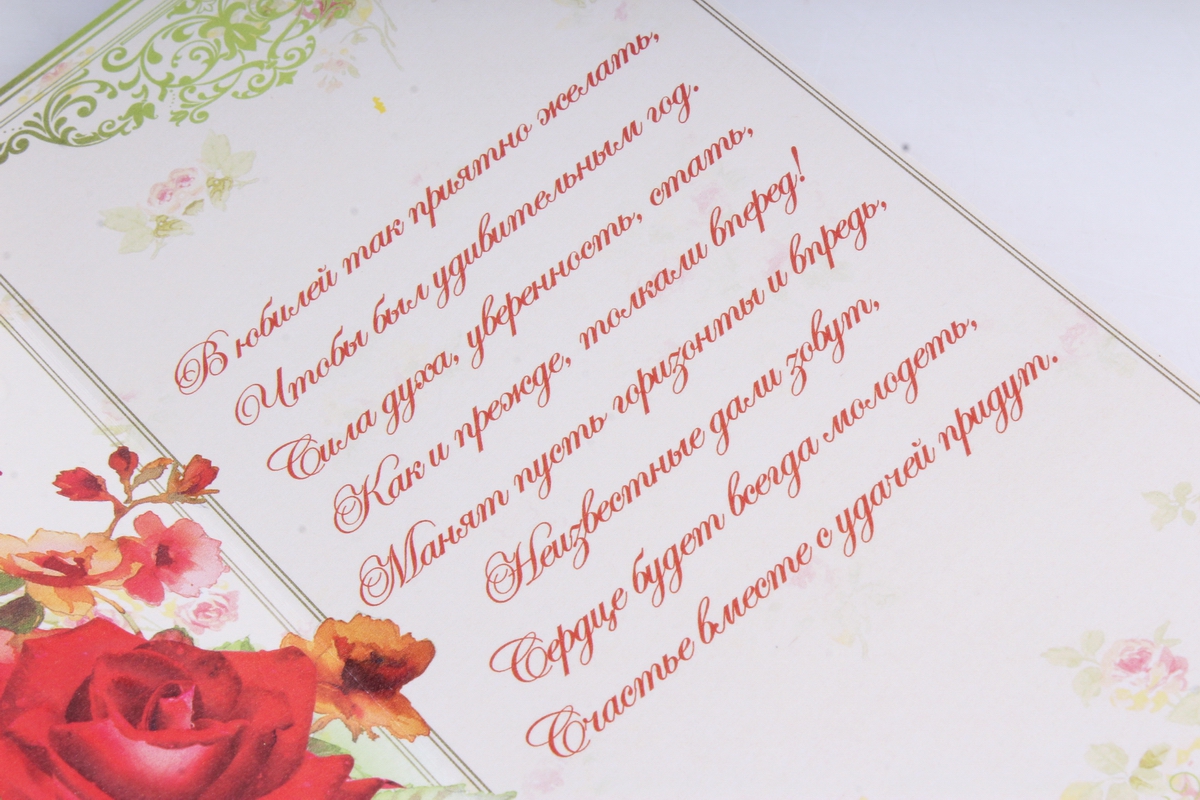 В юбилей так приятно желать,
Чтобы был удивительным год.
Сила духа, уверенность, стать,
Как и прежде, толкали вперед!
Манят пусть горизонты и впредь,
Неизвестные дали зовут,
Сердце будет всегда молодеть,
Счастье вместе с удачей придут.